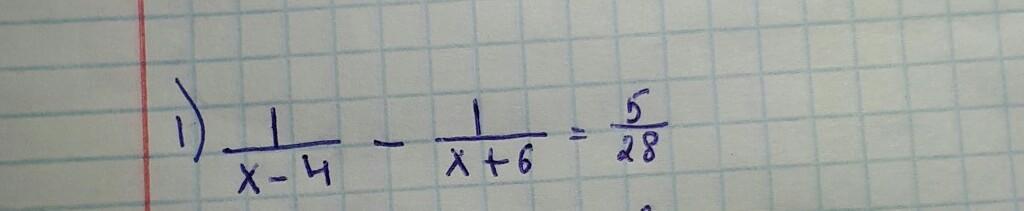 1) 1/(x-4) - 1/(x+6) = 5/28